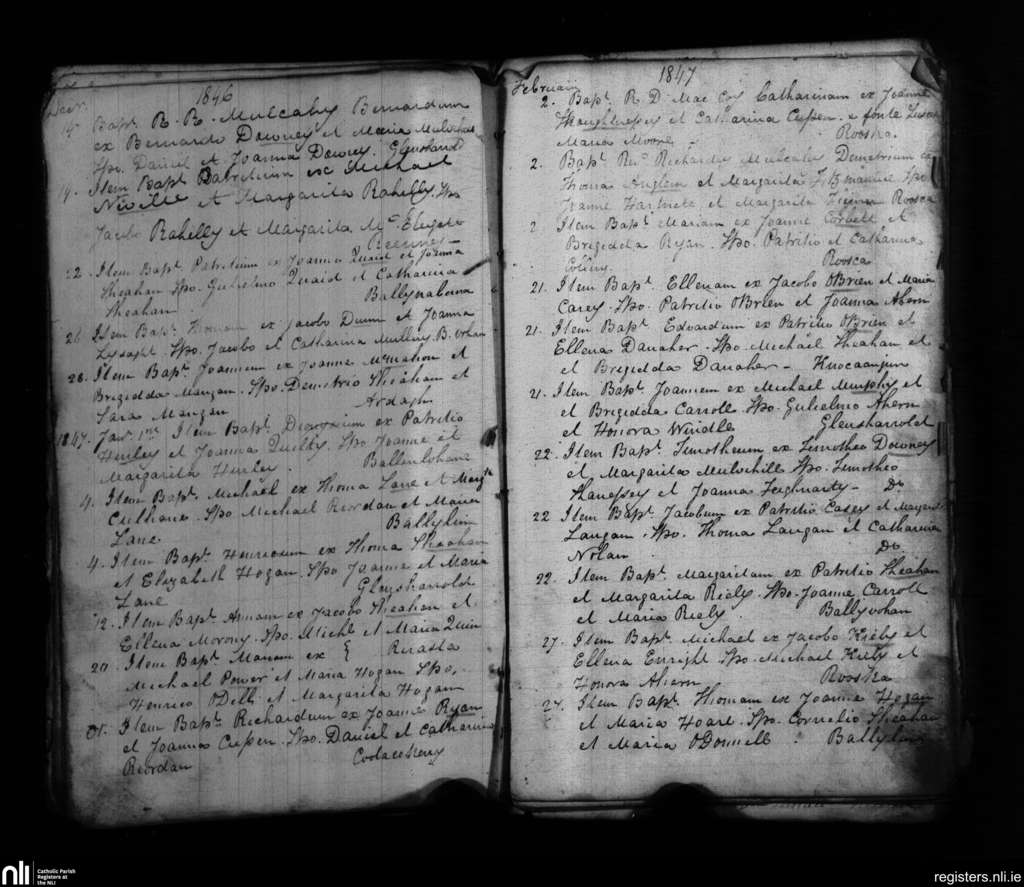 1846
Decr.
14. Bapt. R. R. Mulcahy Bernardum
ex Bernardo Downey et Maria
Spo. Daniel et Joanna Downey. Glensharrold
19. Item Bapt Patritium ex Michael
Neville et Margarita Rahelly. Spo
Jacobo Rahelly et Margarita Mc
22. Item Bapt. Patritium ex Joanne Quaid et Joanna
Sheahan Spo. Gulielmo Quaid et Catharina
Sheahan. Ballynabearna
26. Item Bapt. Thomam ex Jacobo Dunn et Joanna
Lysaght. Spo. Jacobo et Catharina Mulliny. B. vohan
28. Item Bapt. Joannem ex Joanne McMahon et
Brigedda Mangan. Spo. Demetrio Sheahan et
Sara Mangan Ardagh
1847. Jany. 1mo Item Bapt. Dionysium ex Patritio
Hurley et Joanna Quilty Spo Joanne et
Margarita Hurley. Ballenlohane
4. Item Bapt. Michael ex Thoma Lane et Margta
Culhane. Spo Michael Reordan et Maria
Lane Ballylin
4. Item Bapt. Henricum ex Thoma Sheahan
et Elizabeth Hogan. Spo Joanne et Maria
Lane Glensharrold
12. Item Bapt Annam ex Jacobo Sheahan et
Ellena Morony. Spo. Michl et Maria Quin
20. Item Bapt Mariam ex { Riraska
Michael Power et Maria Hogan Spo,
Henrico ODell et Margarita Hogan
Item Bapt. Richardum ex Joanne Ryan
et Joanna Cussen. Spo. Daniel et Catharina
Riordan Coolaceheny
1847
Februarii
2. Bapt. R. D. Mac Coy Catharinam ex Joanne
Shaughnessy et Catharina Cussen. e fonte
Maria Moore Rooska.
2. Bapt Revd Richardus Mulcahy Demetrium ex
Thoma Anglem et Margarita Fitzmaurice Spo
Joanne Hartnete et Margarita Rooska
2 Item Bapt Mariam ex Joanne Corbett et
Brigedda Ryan. Spo. Patritio et Catharina
Colliny. Rooska
21. Item Bapt. Ellenam ex Jacobo OBrien et Maria
Carey. Spo. Patritio OBrien et Joanna Ahern
21. Item Bapt. Edvardum ex Patritio OBrien et
Ellena Danaher. Spo. Michael Sheahan et
et Brigedda Danaher - Knocaanjun
21. Item Bapt. Joannem ex Michael Murphy et
et Brigedda Carroll. Spo. Gulielmo Ahern
et Honora Windle Glensharrold
22. Item Bapt. Timotheum ex Timotheo Downey
et Margarita Mulvihill Spo. Timotheo
Hanessey et Joanna Do
22 Item Bapt. Jacobum ex Patritio Casey et Margarita
Langan. Spo. Thoma Langan et Catharina
Nolan Do
22. Item Bapt. Margaritam ex Patritio Sheahan
et Margarita Riely. Spo. Joanne Carroll
et Maria Riely. Ballyvohan
27. Item Bapt. Michael ex Jacobo Kiely et
Ellena Enright Spo. Michael Kiely et
Honora Ahern Rooska
27. Item Bapt. Thomam ex Joanne Hogan
et Maria Hoare. Spo. Cornelio Sheahan
et Maria ODonnell. Ballylin
nli
Catholic Parish
Registers at
the NLI
registers.nli.ie